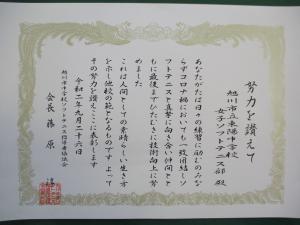 努力を讃えて
旭川市立東陽中学校
女子ソフトテニス部 殿
あなたがたは日々の練習に励むのみな
らずコロナ禍においても一致団結しソ
フトテニスと真摯に向き合い仲間とと
もに最後までひたむきに技術向上に努
めました
これは人間としての素晴らしい生き方
を示し他校の範となるものです よって
その努力を讃えここに表彰します
令和二年九月二十六日
旭川市中学校ソフトテニス指導者協議会
会長 藤原